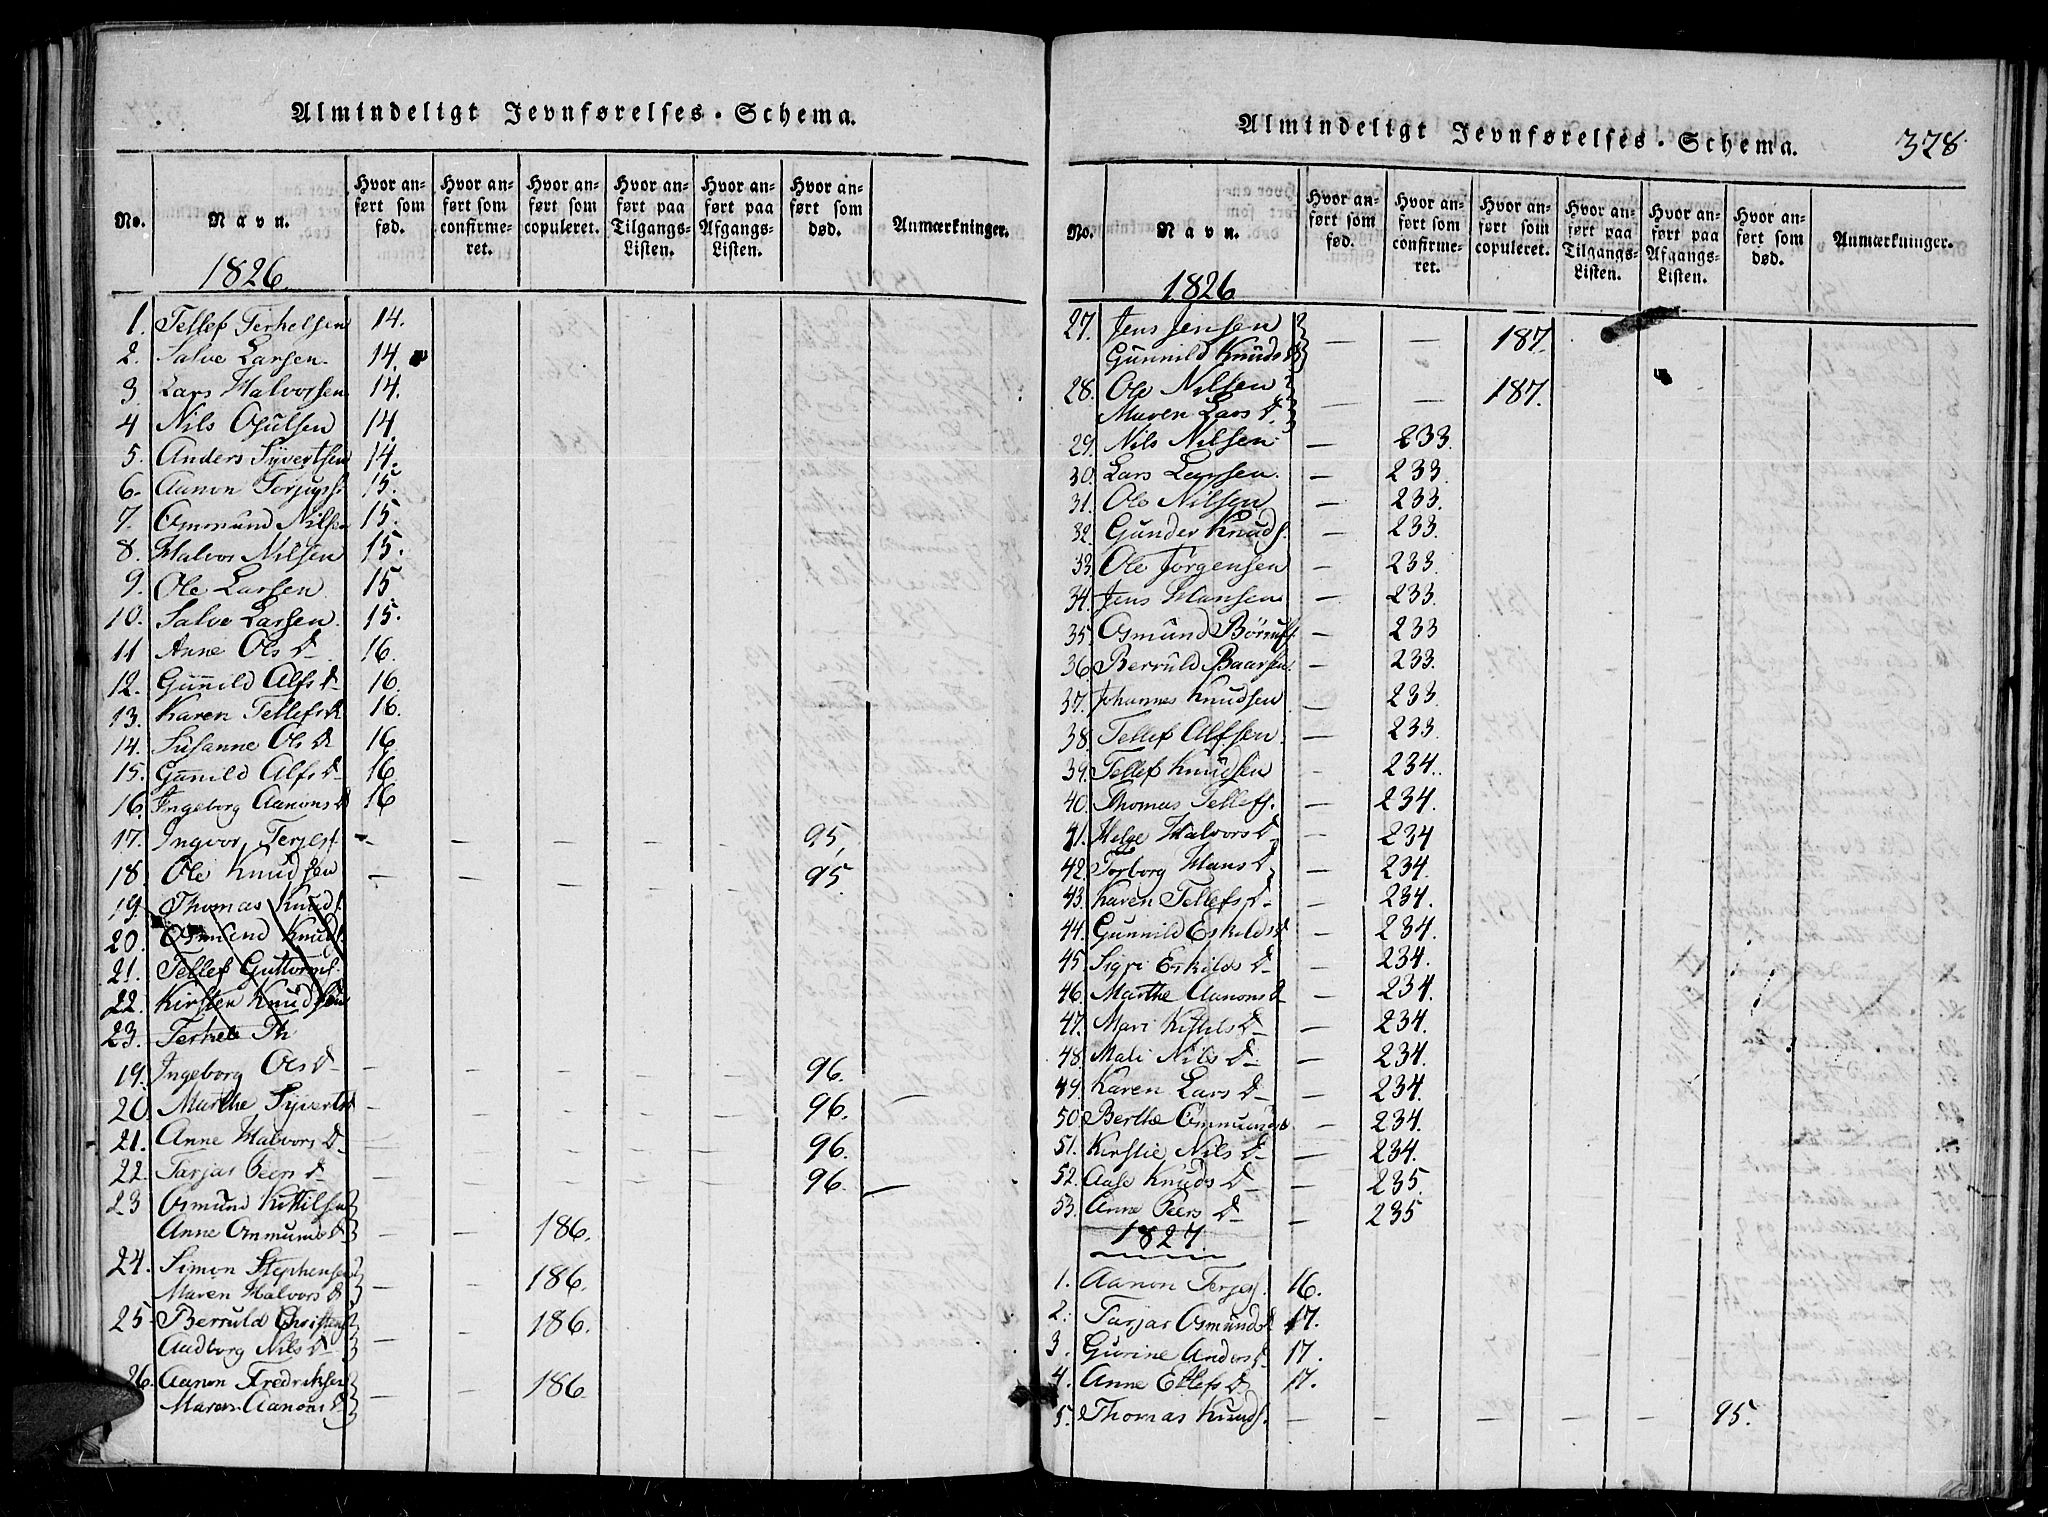 Almindeligt Jevnførelses-Schema.
No. Navn. Hvor anført som fød. Hvor anført som confirmeret. Hvor anført som copuleret. Hvor anført paa Tilgangs-Listen. Hvor anført paa Afgangs-Listen. Hvor anført som død. Anmærkninger.
1826.
1. Tellef Terkelsen 14.
2. Salve Larsen. 14.
3 Lars Halvorsen 14.
4 Nils Osulsen 14.
5. Anders Syvertsen 14.
6. Aanon Torjuss. 15.
7. Ommund Nilsen 15.
8. Halvor Nilsen 15.
9. Ole Larsen 15
10. Salve Larsen. 15.
11 Anne Ols D 16.
12. Gunnild Alfs D 16.
13. Karen Tellefs D 16.
14. Susanne Ols D 16.
15. Gunild Alfs D 16.
16. Ingeborg Aanons D 16
17. Ingvor Terjes. - - - - - 95,
18. Ole Knudsen - - - - - 95.
19. Thomas Knuds.
20. Osmund Knuds.
21. Tellef Guttorms.
22. Kirsten Knudsen
23. Terkel Th
19. Ingeborg Ols D - - - - - 96.
20. Marthe Syverts D - - - - - 96. -
21. Anne Halvors D - - - - - 96.
22. Tarjar Peers D - - - - - 96. -
23 Osmund Kittilsen
Anne Ommunds D - - 186.
24. Simon Stephensen
Maren Halvors D - - 186.
25. Berruld Christens.
Audborg Nils D - - 186.
26. Aanon Fredriksen
Maren Aanons D - - 186.
Almindeligt Jevnførelses-Schema. 378
No. Navn. Hvor anført som fød. Hvor anført som confirmeret. Hvor anført som copuleret. Hvor anført paa Tilgangs-Listen. Hvor anført paa Afgangs-Listen. Hvor anført som død. Anmærkninger.
1826
27. Jens Jensen
Gunnild Knuds D - - 187.
28. Ole Nilsen
Maren Lars D. - - 187.
29. Nils Nilsen. - 233.
30. Lars Larsen. - 233.
31. Ole Nilsen - 233.
32. Gunder Knuds. - 233.
33. Ole Jörgensen - 233.
34. Jens Hansen - 233.
35. Osmund Börufs. - 233
36. Berruld Baarsen. - 233.
37. Johannes Knudsen - 233
38. Tellef Alfsen. - 233.
39. Tellef Knudsen - 234.
40. Thomas Tellefs. - 234.
41. Helge Halvors D - 234
42. Torborg Hans D - 234.
43. Karen Tellefs D - 234.
44. Gunnild Eskilds D - 234.
45. Sigri Eskilds D - 234.
46. Marthe Aanons D - 234.
47. Mari Kittils D - 234.
48. Mali Nils D. - 234.
49. Karen Lars D - 234.
50 Berthe Ommunds D - 234.
51. Kirstie Nils D - 234.
52. Aase Knuds D - 235.
53. Anne Peers D - 235
1827
1. Aanon Terjes. 16.
2. Tarjar Osmunds D 17.
3. Gurine Anders D 17.
4. Anne Ellefs D 17.
5. Thomas Knuds. - - - - - 95.